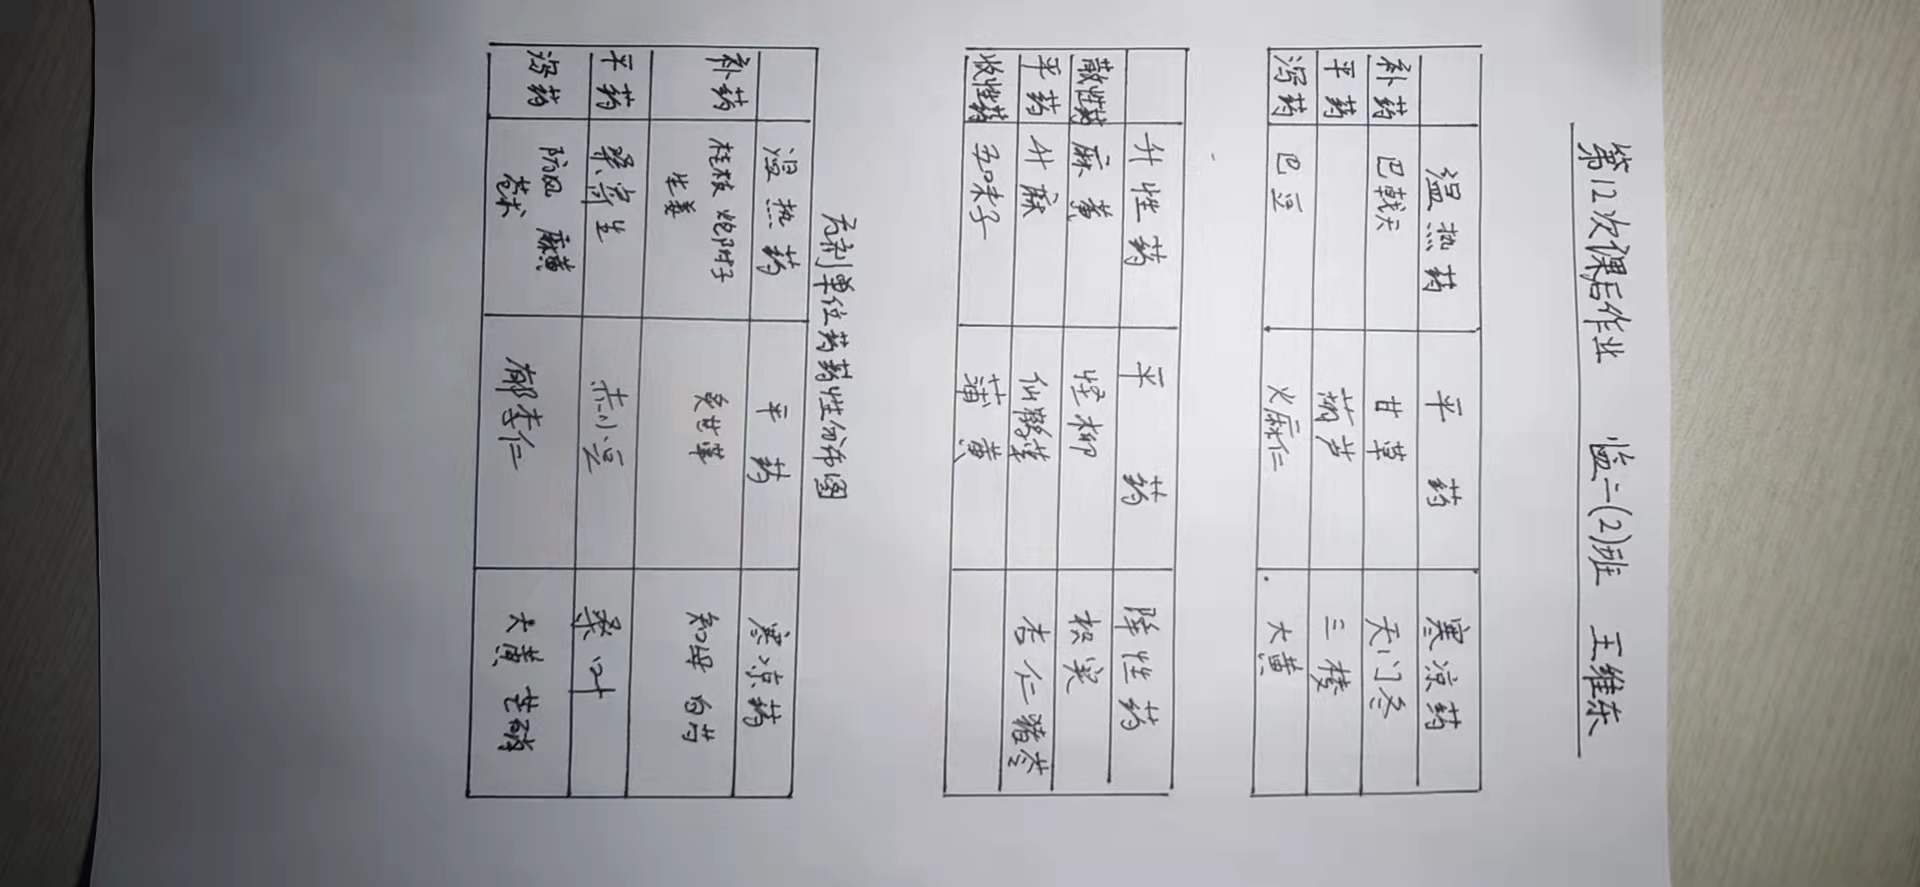 第12次课后作业 二(2)班 王维东
温热药 平药 寒凉药
补药 巴戟天 甘草 天门冬
平药 葫芦 三棱
泻药 巴豆 火麻仁 大黄
升性药 平药 降性药
散性药 麻黄 柽柳 枳实
平药 升麻 仙鹤草 杏仁 猪苓
收性药 五味子 蒲黄
方剂单位药药性分布图
温热药 平药 寒凉药
补药 桂枝 炮附子 炙甘草 知母 白芍
生姜
平药 桑寄生 赤小豆 桑叶
泻药 防风 麻黄 郁李仁 大黄 芒硝
苍术